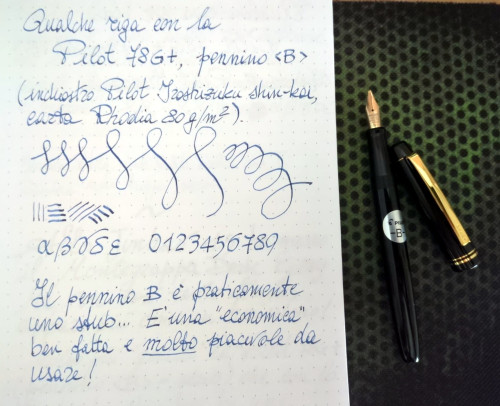 Qualche riga con la
Pilot 78G+, pennino <B>
(inchiostro Pilot Iroshizuku shin-kai,
carta Rhodia 80g/m²).
αβγδε 0123456789
Il pennino B è praticamente
uno stub... E' una "economica"
ben fatta e molto piacevole da
usare!
-B-